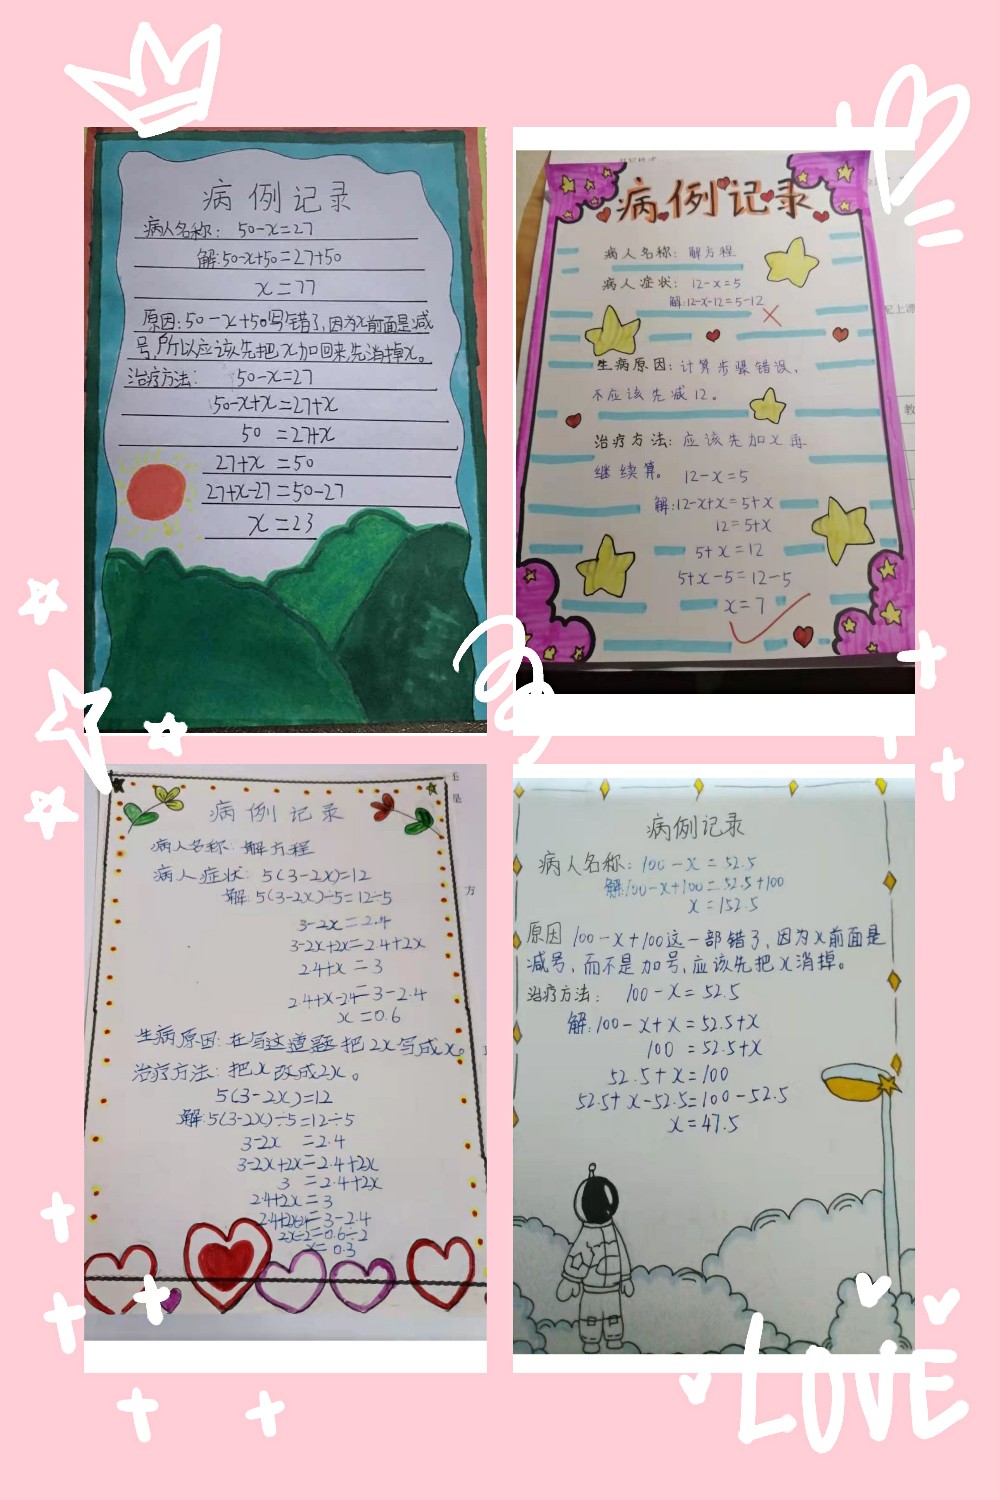 病例记录
病人名称: 50-x=27
解:50-x+50=27+50
x=77
原因:50-x+50写错了,因为x前面是减
号,所以应该先把x加回来,先消掉x。
治疗方法: 50-x=27
50-x+x=27+x
50 =27+x
27+x =50
27+x-27=50-27
x=23
病例记录
病人名称: 解方程
病人症状: 12-x=5
解:12-x-12=5-12
生病原因:计算步骤错误,
不应该先减12。
治疗方法:应该先加x再
继续算。 12-x=5
解:12-x+x=5+x
12=5+x
5+x=12
5+x-5=12-5
x=7
病例记录
病人名称:解方程
病人症状: 5(3-2x)=12
解:5(3-2x)÷5=12÷5
3-2x=2.4
3-2x+2x=2.4+2x
2.4+x=3
2.4+x-2.4=3-2.4
x=0.6
生病原因:在写这道题把2x写成x。
治疗方法:把x改成2x。
5(3-2x)=12
解:5(3-2x)÷5=12÷5
3-2x =2.4
3-2x+2x=2.4+2x
3 =2.4+2x
2.4+2x=3
=3-2.4
2x÷2=0.6÷2
x=0.3
病例记录
病人名称:100-x=52.5
解:100-x+100=52.5+100
x=152.5
原因 100-x+100这一部错了,因为x前面是
减号,而不是加号,应该先把x消掉。
治疗方法: 100-x=52.5
解:100-x+x=52.5+x
100 =52.5+x
52.5+x=100
52.5+x-52.5=100-52.5
x=47.5
LOVE